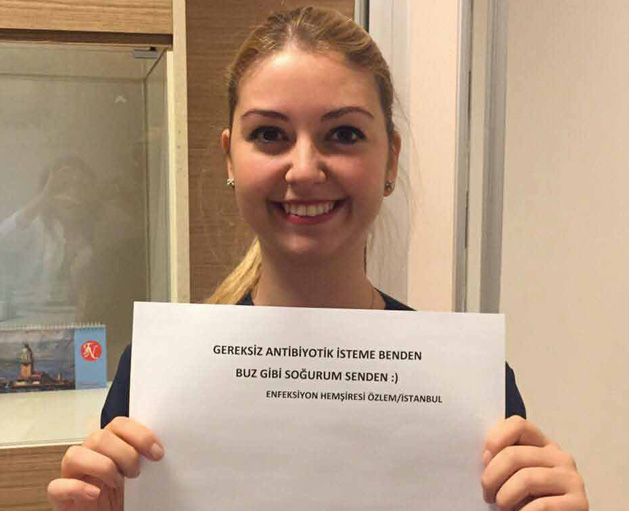 GEREKSİZ ANTİBİYOTİK İSTEME BENDEN
BUZ GİBİ SOĞURUM SENDEN :)
ENFEKSİYON HEMŞİRESİ ÖZLEM/İSTANBUL